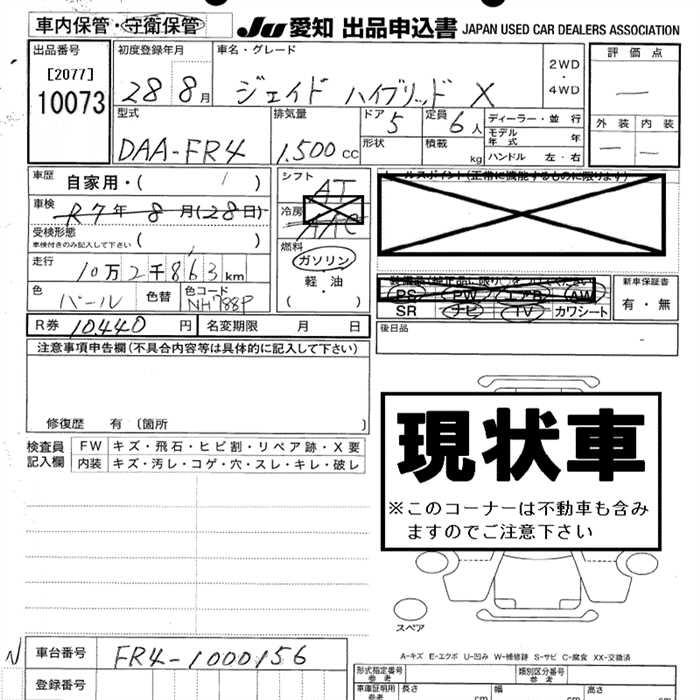 車内保管・守衛保管 JU 愛知 出品申込書 JAPAN USED CAR DEALERS ASSOCIATION
出品番号 初度登録年月 車名・グレード 評価点
[2077] 2WD・4WD
10073 28 8月 ジェイド ハイブリッド X
外装 内装
型式 排気量 ドア 5 定員 6人 ディーラー・並行
モデル年式 年
DAA-FR4 1.500cc 形状 積載 kg ハンドル 左・右
車歴 自家用・( ) シフト AT セールスポイント(正常に機能するものに限ります)
車検 R7年8月(28日) 冷房 AAC
受検形態
車検付きのみ記入して下さい ( ) 燃料 ガソリン
走行 10万2千863km 軽・油
( )
新車保証書
PS PW エアB AW 有・無
色 パール 色替 色コード NH788P SR ナビ TV カワシート
R券 10,440円 名変期限 月 日 後日品
注意事項申告欄(不具合内容等は具体的に記入して下さい)
現状車
※このコーナーは不動車も含み
ますのでご注意下さい
修復歴 有 〔箇所 〕
検査員記入欄 FW キズ・飛石・ヒビ割・リペア跡・X要
内装 キズ・汚レ・コゲ・穴・スレ・キレ・破レ
スペア
A-キズ E-エクボ U-凹み W-補修跡 S-サビ C-腐食 XX-交換済
N 車台番号 FR4-1000156
形式指定番号 参考 類別区分番号 参考
登録番号 車庫証明用 参考 長さ cm 幅 cm 高さ cm